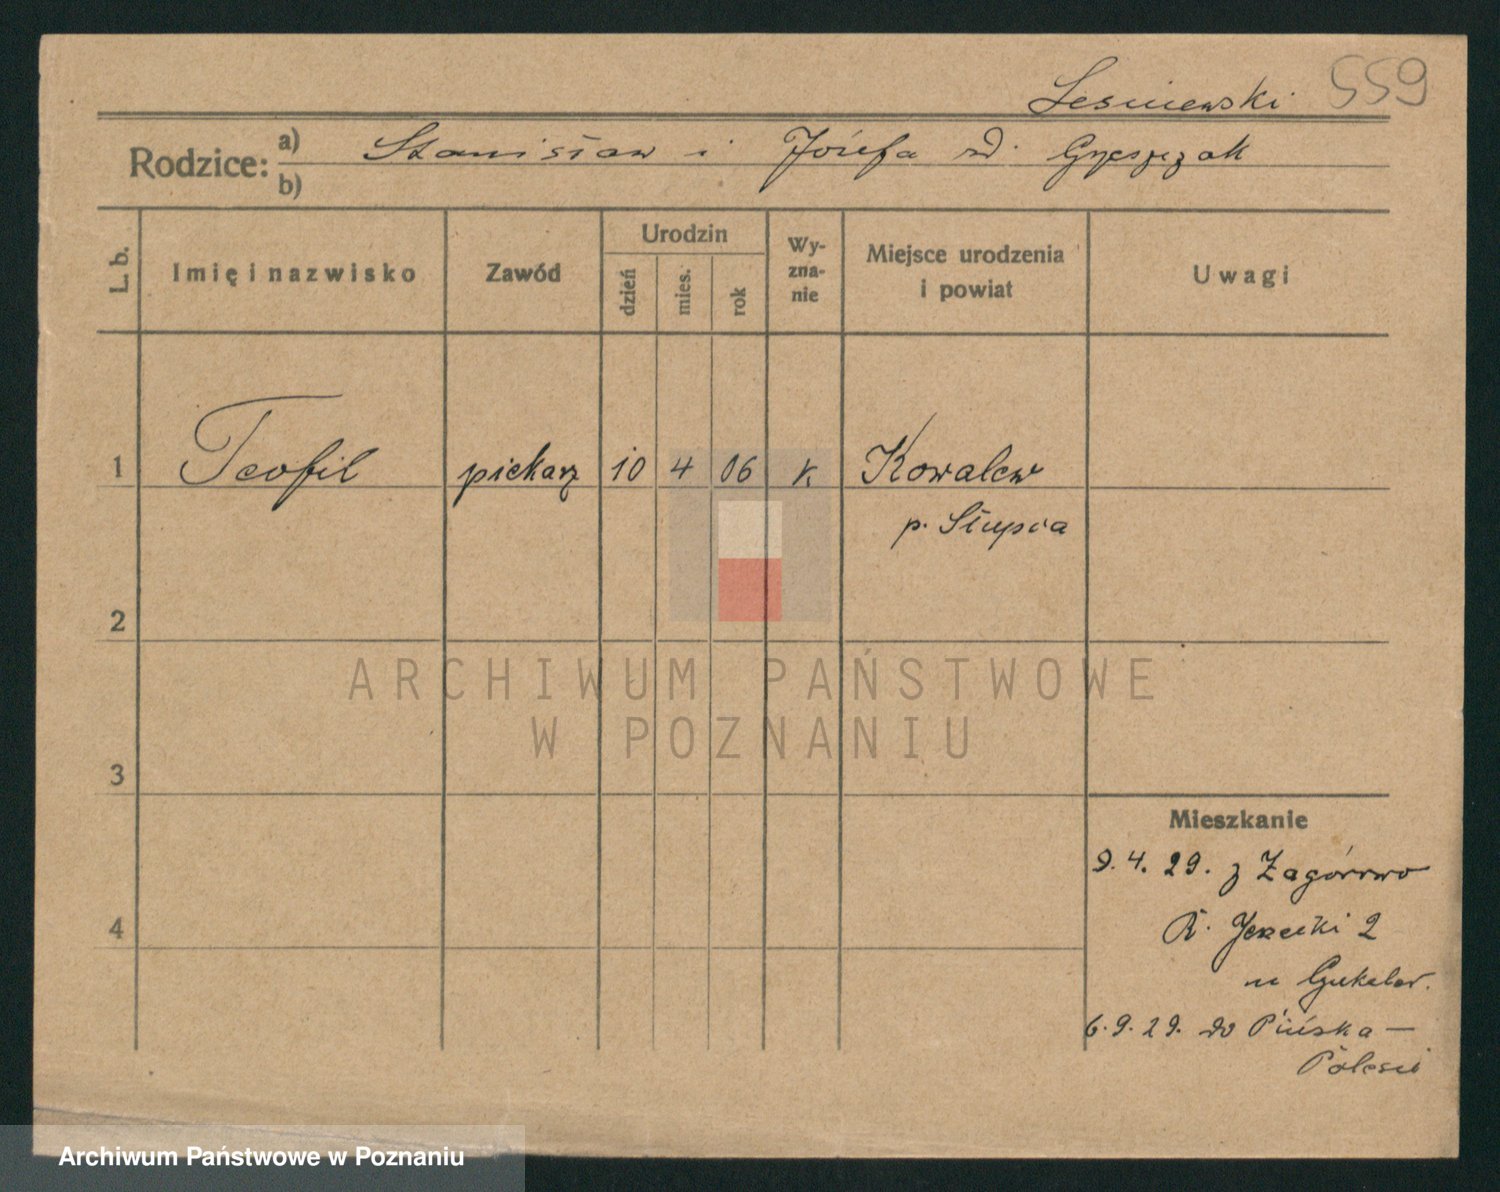 Lesniewski 559
Rodzice: a) Stanisław i Józefa
b)
L. b.
Imię i nazwisko
Zawód
Urodzin
dzień
mies.
rok
Wy-
zna-
nie
Miejsce urodzenia
i powiat
Uwagi
1 Teofil piekarz 10 4 06 k Kowalew
p. Słupca
2
3
4
Mieszkanie
9. 4. 29. z Zagórowo
2
6. 9. 29. do Pińska —
Polesie
ARCHIWUM PAŃSTWOWE
W POZNANIU
Archiwum Państwowe w Poznaniu